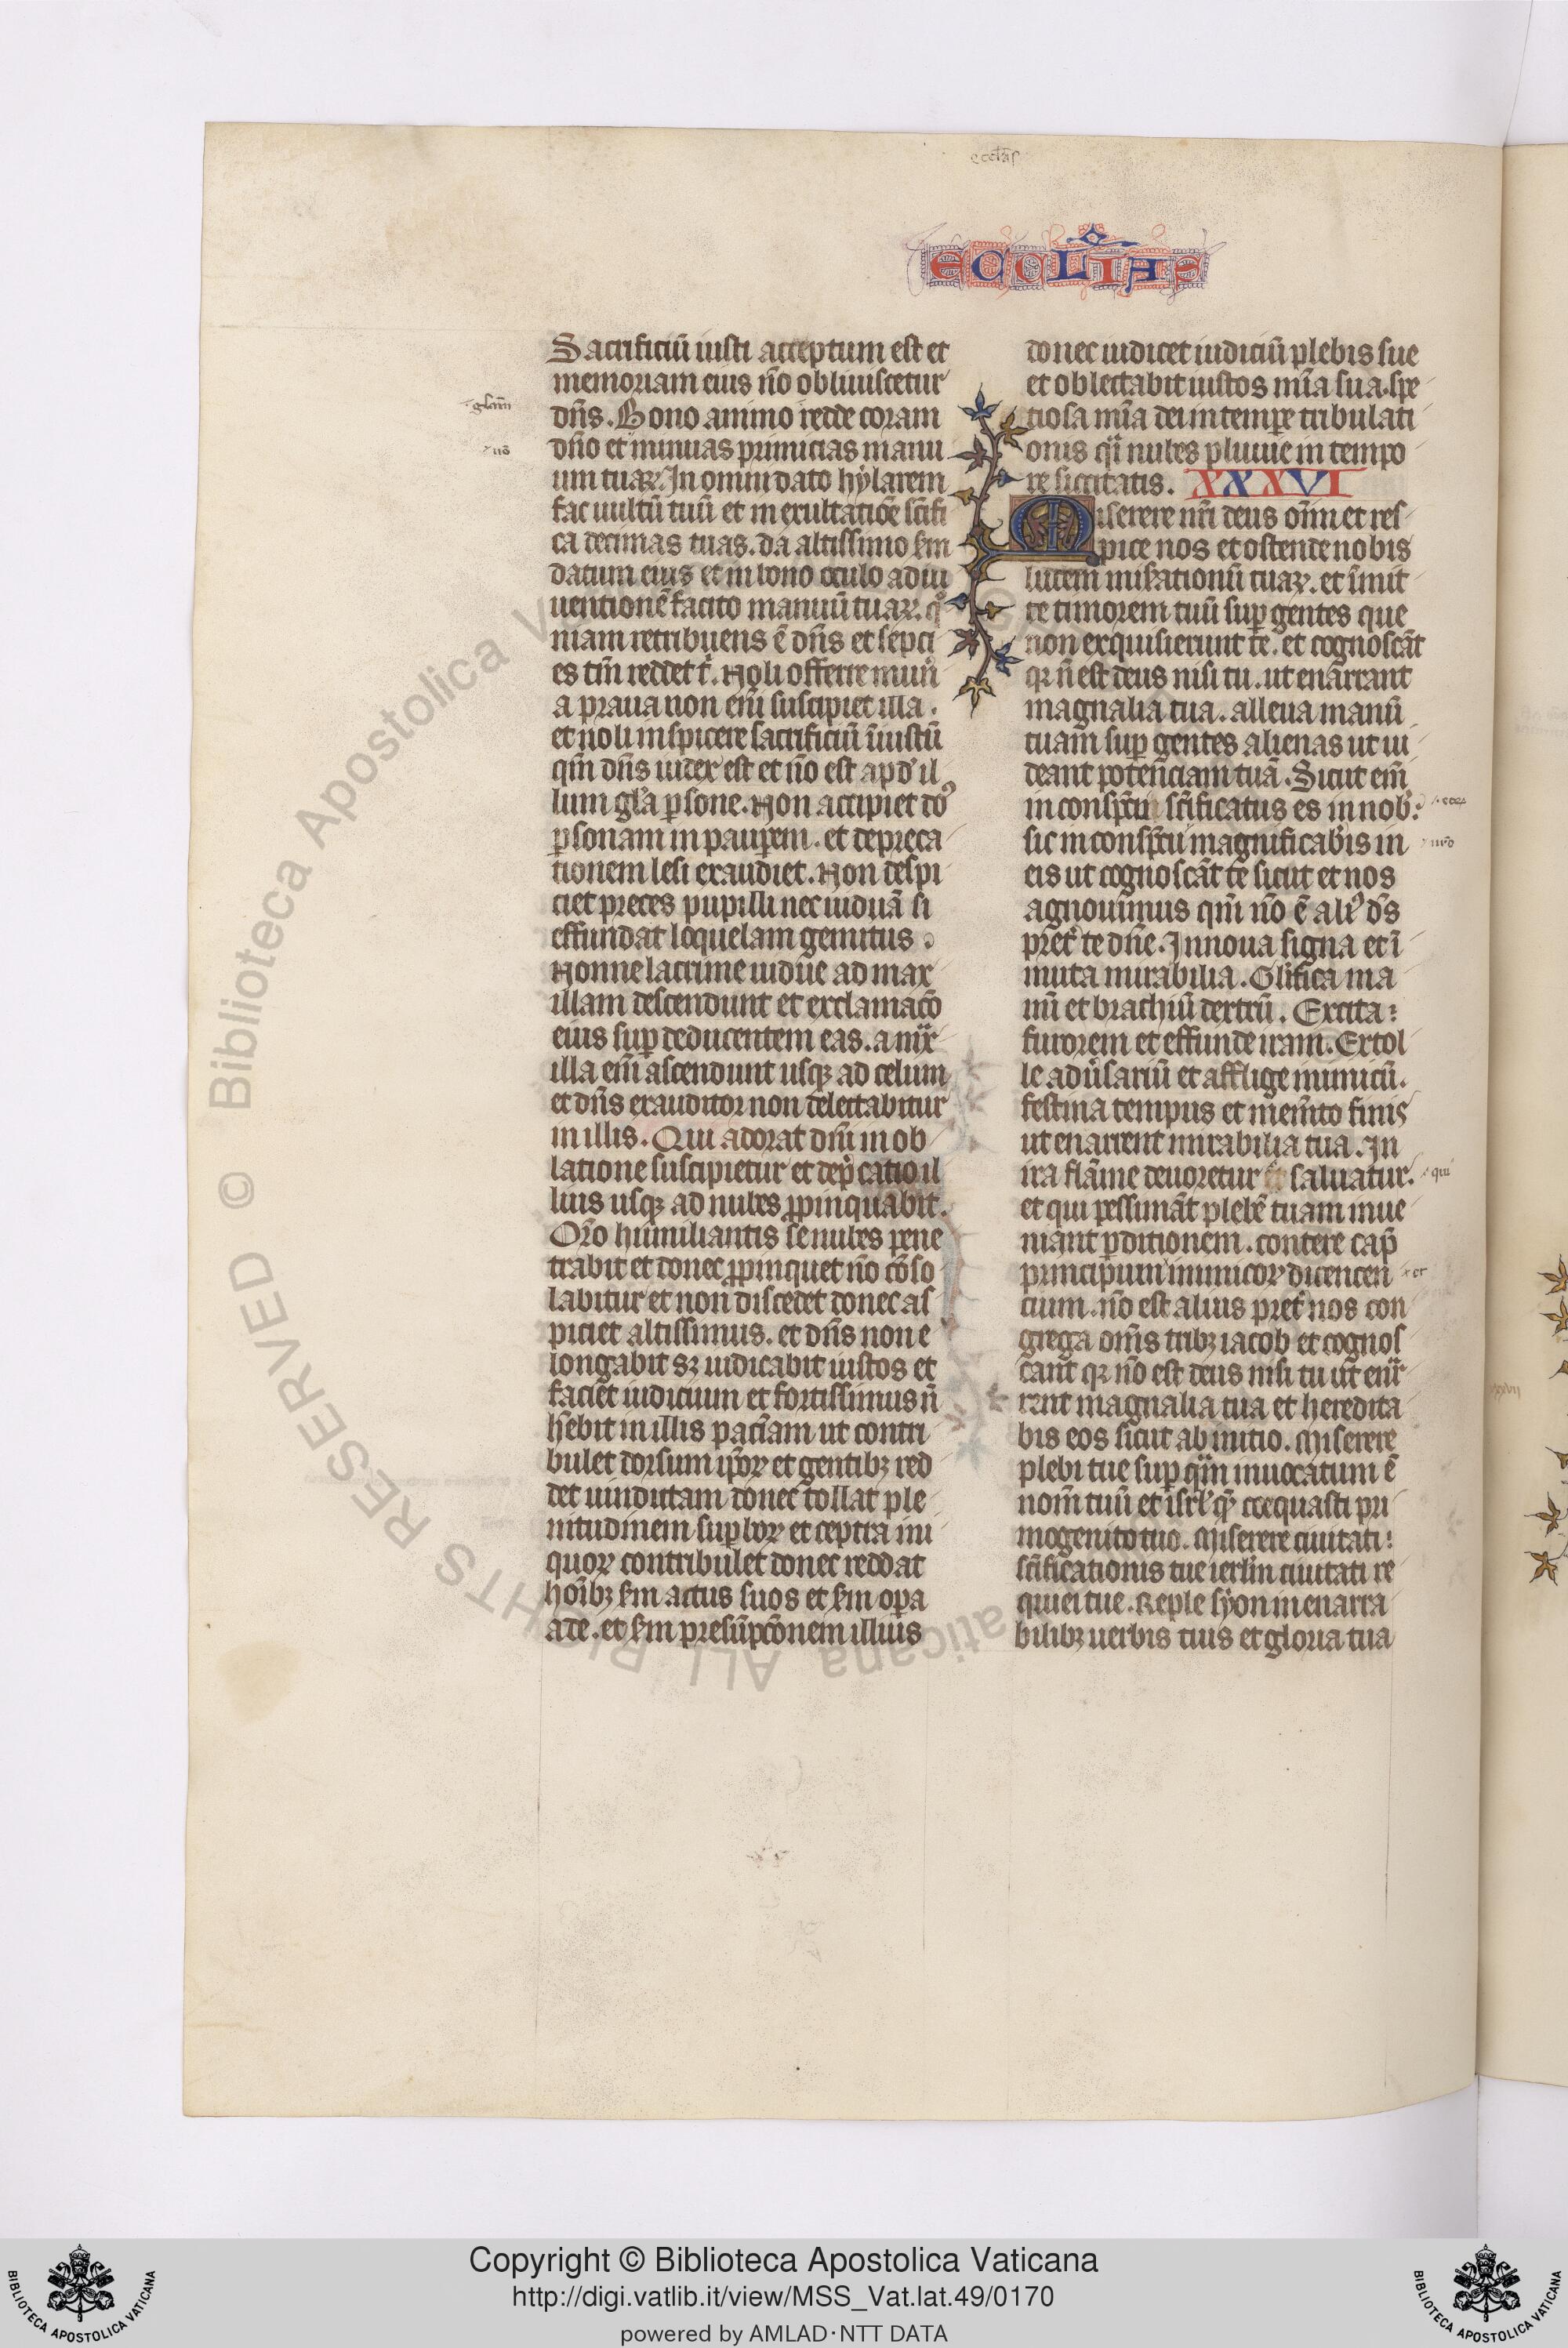 eccl̅as
ECCLIA̅S
Sacrificiū iusti acceptum est et
memoriam eius n̅o obliuiscetur
dn̅s. Bono animo redde coram
gl̅am
dn̅o et minuas primicias manu
no̅
um tuaꝝ. In omni dato hẏlarem
fac uultū tuū et in exultatiōe sc̅ifi
ca decimas tuas. da altissimo sm̅
datum eius et in bono oculo adiu
uentionē facito manuū tuaꝝ. qo
niam retribuens ē dn̅s et septi
es tm̅ reddet t̅. Noli offerre mun̅
a praua non eni̅ suscipiet illa.
et noli inspicere sacrificiū iniustū
qm̅ dn̅s iudex est et n̅o est apd̕ il
lum gl̅a ꝑsone. Non accipiet do̅ꝰ
ꝑsonam in pauꝑem. et depreca
tionem lesi exaudiet. Non despi
ciet preces pupilli nec uiduā si
effundat loquelam gemitus
Nonne lacrime uidue ad max
illam descendunt et exclamac̅o
eius suꝑ deducentem eas. a mx̅
illa eni̅ ascendunt usqꝫ ad celum
et dn̅s exauditor non delectabitur
in illis. Qui adorat dm̅ in ob
latione suscipietur et dep̅catio il
lius usqꝫ ad nubes ꝓpinquabit.
Or̅o humiliantis se nubes pene
trabit et donec ꝓpinquet n̅o cōso
labitur et non discedet donec as
piciet altissimus. et dn̅s non e
longabit sꝫ iudicabit iustos et
faciet iudicium et fortissimus n̅
h̅ebit in illis pac̅iam ut contri
bulet dorsum ip̅oꝝ et gentibꝫ red
det uindictam donec tollat ple
nitudinem suꝑboꝝ et ceptra ini
quoꝝ contribulet donec reddat
ho̅ibꝫ sm̅ actus suos et sm̅ oꝑa
ade. et sm̅ presūpc̅onem illius
donec iudicet iudiciū plebis sue
et oblectabit iustos mi̅a sua. spe
ciosa mi̅a dei in tempe̅ tribulati
onis qi̅ nubes pluuie in tempo
re siccitatis. XXXVI
Miserere nr̅i deus om̅i et res
pice nos et ostende nobis
lucem misationū tuaꝝ. et īmit
te timorem tuū suꝑ gentes que
non exquisierunt te. et cognoscāt
qꝛ n̅ est deus nisi tu. ut enarrant
magnalia tua. alleua manū
tuam suꝑ gentes alienas ut ui
deant potenciam tuā. Sicut eni̅
in consp̅tu sc̅ificatus es in nob̕.
sic in consp̅tu magnificabis in
nr̅o
eis ut cognoscāt te sicut et nos
agnouimus qm̅ n̅o ē aliꝰ d̅s
pret̅ te dn̅e. Innoua signa et ī
muta mirabilia. Gl̅ifica ma
nū et brachiū dextrū. Excita
furorem et effunde iram. Extol
le adu̅sariū et afflige inimicū.
festina tempus et mem̅to finis
ut enarrent mirabilia tua. In
ira flāme deuoretur saluatur.
qui
et qui pessimāt plebē tuam inue
niant ꝑditionem. contere cap̅
principum inimicoꝝ dicencen
er
cium. n̅o est alius pret̅ nos con
grega om̅s tribꝫ iacob et cognos
cant qꝛ n̅o est deus nisi tu ut enr̅
rent magnalia tua et heredita
bis eos sicut ab inicio. Miserere
plebi tue suꝑ qm̅ inuocatum ē
nom̅ tuū et isr̅l qꝫ coequasti pri
mogenito tuo. Miserere ciuitati
sc̅ificationis tue ierl̅m ciuitati re
quiei tue. Reple sẏon inenarra
bilibꝫ uerbis tuis et gloria tua
© Biblioteca Apostolica Vaticana ALL RIGHTS RESERVED
Copyright © Biblioteca Apostolica Vaticana
http://digi.vatlib.it/view/MSS_Vat.lat.49/0170
powered by AMLAD·NTT DATA
BIBLIOTECA APOSTOLICA VATICANA
BIBLIOTECA APOSTOLICA VATICANA